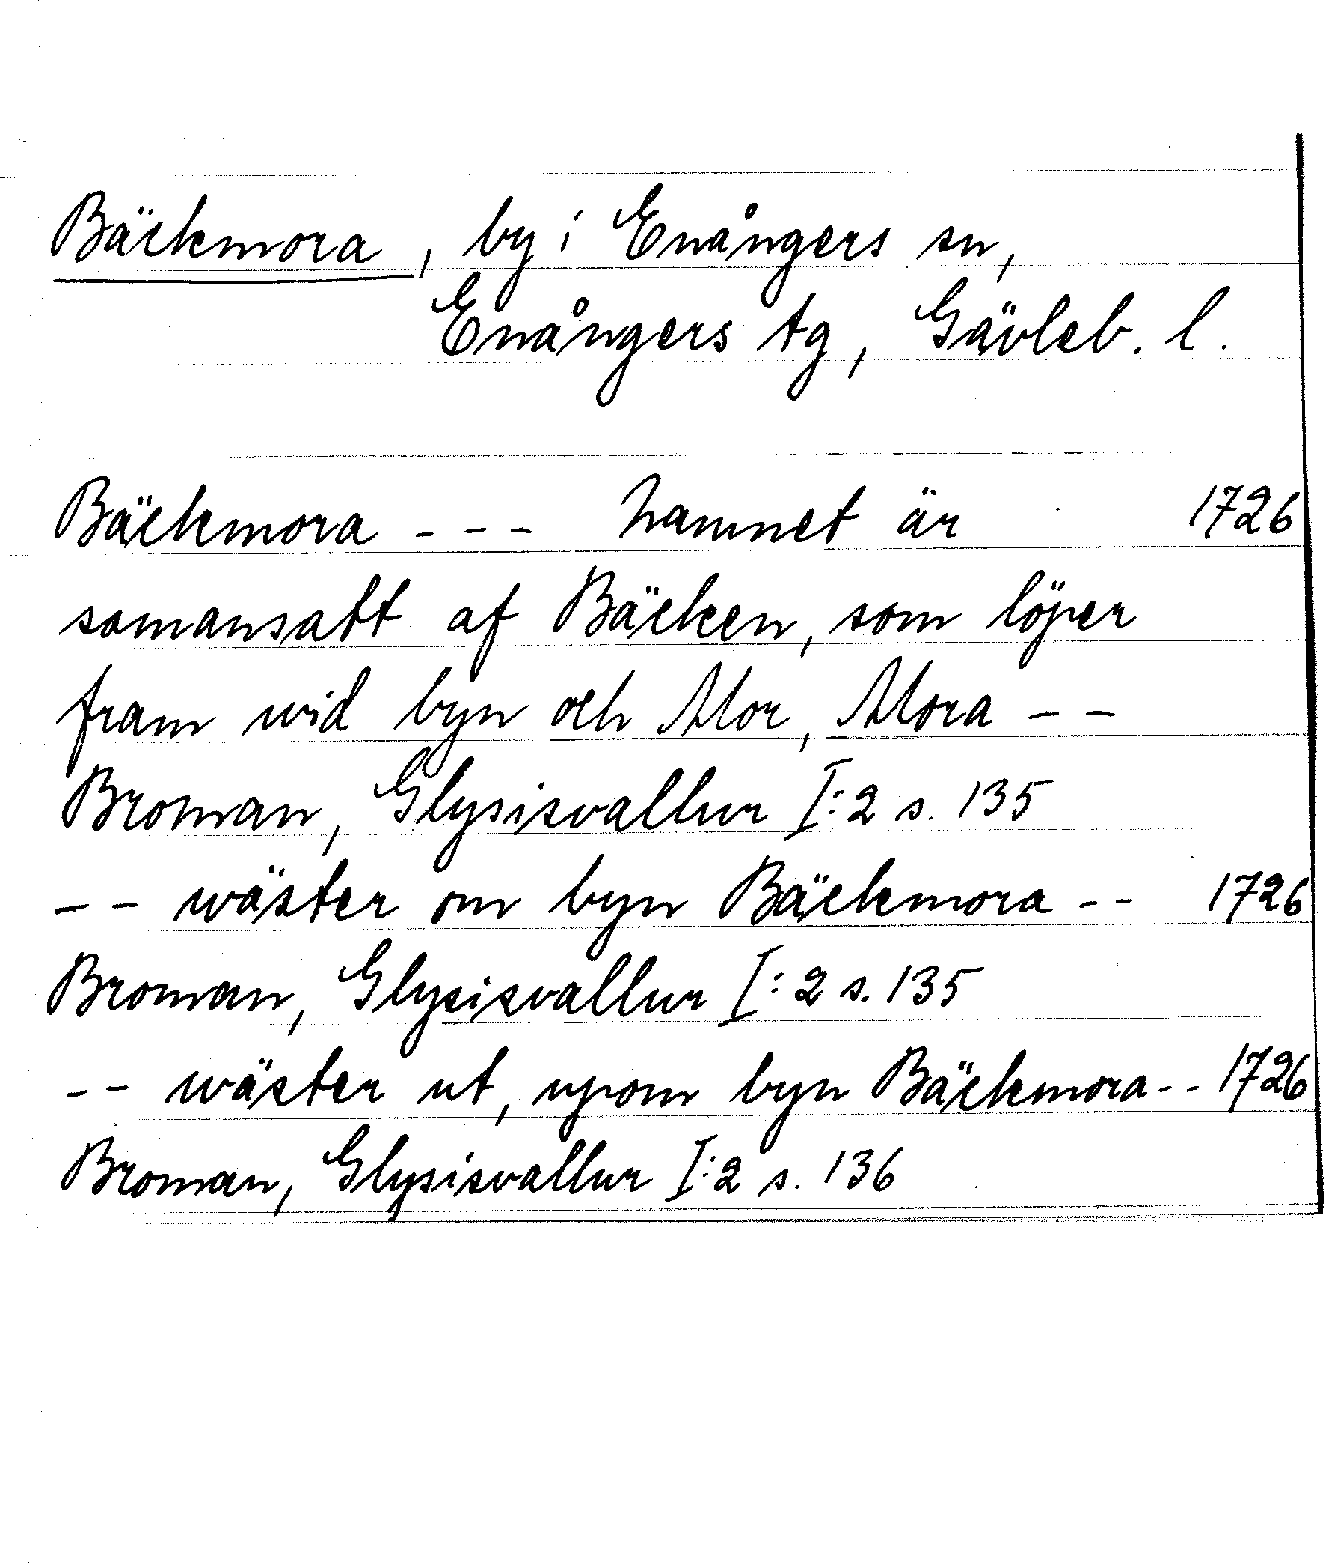 Bäckmora, by i Enångers sn,
Enångers tg, Gävleb. l.
Bäckmora --- Namnet är 1726
samansatt af Bäcken, som löper
fram wid byn och Mor, Mora --
Broman, Glysisvallur I:2 s. 135
-- wäster om byn Bäckmora -- 1726
Broman, Glysisvallur I:2 s. 135
-- wäster ut, upom byn Bäckmora -- 1726
Broman, Glysisvallur I:2 s. 136